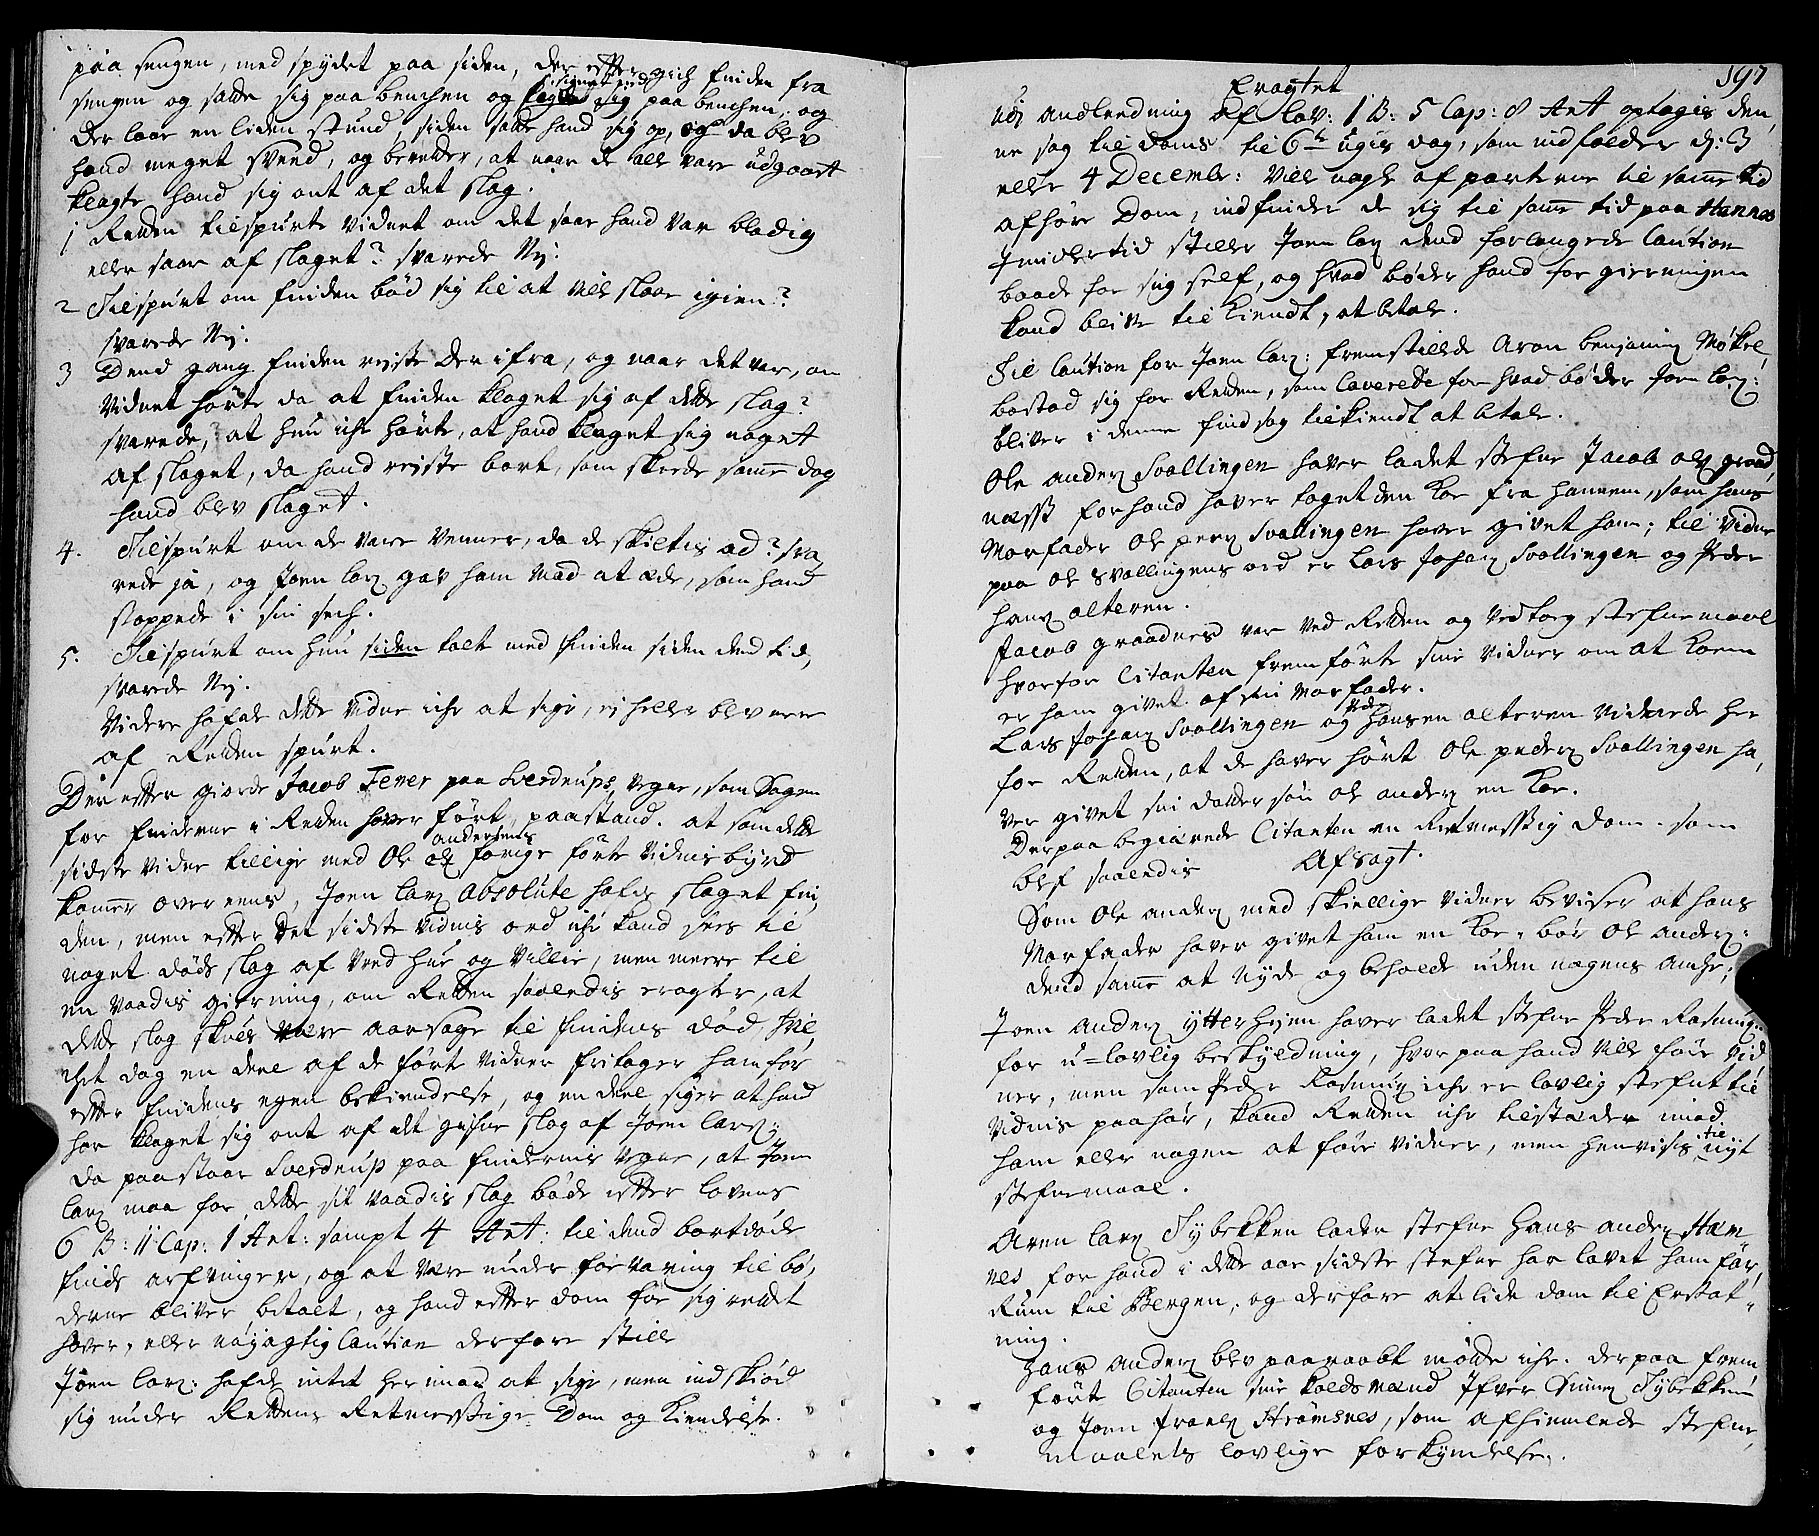 paa sengen, med spydet paa siden, der efter gich finden fra
sengen og satte sig paa benchen og sig paa benchen, og
der laae en liden stund, siden satte hand sig op, og da blev
hand meget sveed, og beretter, at naar de alle vare udgaaet
klagte hand sig ont af det slag.
1 Retten tilspurte vidnet om det saae hand var blodig
eller saar af slaget? svarede Nej.
2 Tilspurt om finden bød sig til at ville slaae igien?
svarede Nej.
3 Dend gang finden reiste der ifra, og naar det var, om
vidnet hørte da at finden klaget sig af dette slag?
svarede, at hun iche hørte, at hand klaget sig noget
af slaget, da hand reiste bort, som skeede samme dag
hand blev slaget.
4. Tilspurt om de vare venner, da de skiltis ad? sva
rede ja, og Joen Lars: gav ham mad at æde, som hand
stoppede i sin sech.
5. Tilspurt om hun siden talt med finden siden dend tid,
svarede Nej.
Videre hafde dette vidne iche at sige, ej heller blev mere
af Retten spurt.
Der efter giorde Jacob Fever paa Sverdrups vegne, som sagen
for finderne i Retten haver ført, paastand. at som dette
sidste vidne tillige med Ole andersens forrige førte vidnis byrd
kommer over eens, Joen Lars: absolute hafde slaget fin,
den, men efter det sidste vidnis ord iche kand sees til
noget døds slag af vred hue og villie, men meere til
en vaadis gierning, om Retten saaledis eragter, at
dette slag skulle være aarsage til findens død, hvil,
chet dog en deel af de ført vidner fritager ham for
efter findens egen bekiendelse, og en deel siger at hand
har klaget sig ont af det gifne slag af Joen Lars:
da paastaar Sverdrup paa findernis vegne, at Joen
Lars: maa for dette sit vaadis slag bøde efter lovens
6 B: 11 Cap: 1 Art: sampt 4 Art: til dend bortdøde
finds arfvinger, og at være under forvaring til bø,
derne bliver betalt, og hand efter dom for sig rettet
haver, eller nøyagtig Caution derfore stille
Joen Lars: hafde intet her imod at sige, men indskiød
sig under Rettens Retmessige Dom og kiendelse.
197
Eragtet
Udj andleedning af lov: 1 B: 5 Cap: 8 Art optagis den,
ne sag til doms til 6te ugis dag, som indfalder d: 3
eller 4 Decembr: ville nogle af parterne til samme tid
afhøre Dom, indfinder de sig til samme tid paa Hannes
Imidlertid stiller Joen Lars: dend forlangede Caution
baade for sig self, og hvad bøder hand for gierningen
kand blive til kiendt, at betale.
Til Caution for Joen Lars: fremstillede Aron benjamins: Møkel,
bostad sig for Retten, som Caverede for hvad bøder Joen Lars:
bliver i denne find sag tilkiendt at betale.
Ole anders: Svallingen haver ladet stefne Jacob ols: graad,
næss for hand haver taget den koe fra hannem, som hans
Morfader Ole peers: Svallingen haver givet ham; til vidne
paa Ole Svallingens ord er Lars Johans: Svallingen og Peder
hans: alteren.
Jacob graadnes var ved Retten og vedtog stefnemaal
hvorfor Citanten fremførte sine vidner om at koen
er ham givet af sin Morfader.
Lars Johans: Svallingen og Peder Hansen alteren vidnede her
for Retten, at de haver hørt Ole peders: Svallingen ha,
ver givet sin datter søn ole anders: en koe.
Derpaa begiærede Citanten en Retmessig dom. som
blef saaledis Afsagt.
Som Ole anders: med skiellige vidner beviser at hans
Morfader haver givet ham en koe, bør Ole anders:
dend samme at nyde og beholde uden nogens anche;
Joen anders: ytterhejen haver ladet stefne Peder Rasmus:
for u=lovlig beskyldning, hvor paa hand ville føre vid
ner, men som Peder Rasmus: iche er lovlig stefnt til
vidnis paahør, kand Retten iche tilstæder imod
ham eller nogen at føre vidner, men henvises til nyt
stefnemaal.
Aren Lars: Tybekken lader stefne Hans anders: Ham
nes for hand i dette aar sidste stefne har lovet ham før,
Rum til Bergen, og derfore at lide dom til Erstat=
ning.
Hans anders: blev paaraabt mødte iche. derpaa frem
ført Citanten sine kaldsmænd Ifver Tybekken
og Joen frans: Strømsnes, som afhiemlede stefne,
maalets lovlige forkyndelse.